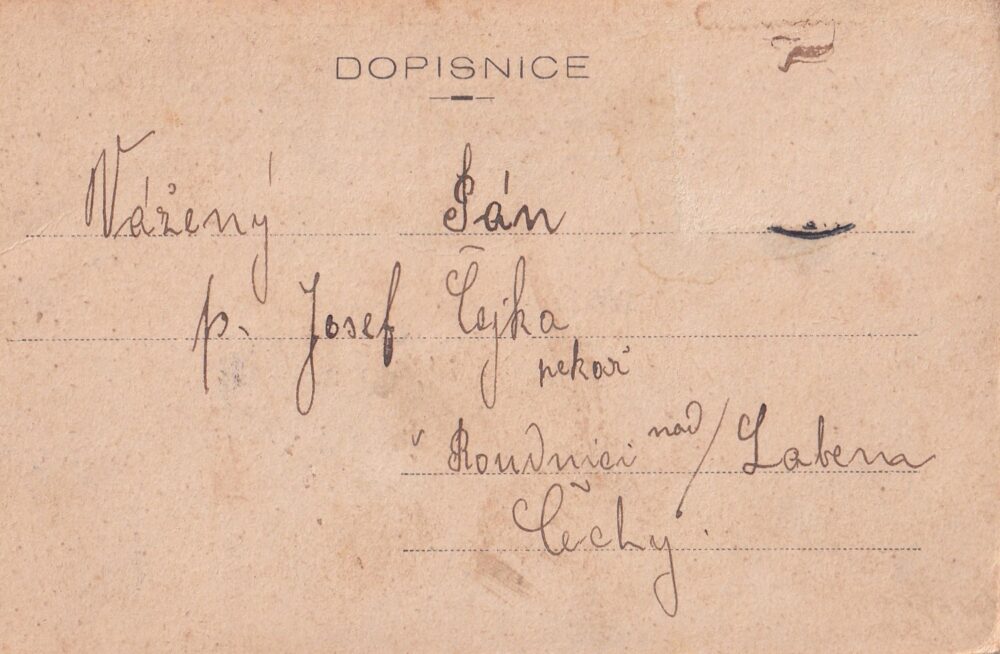 DOPISNICE
Vážený Pán
p. Josef Čejka
pekař
v Roudnici nad/Labem
Čechy.